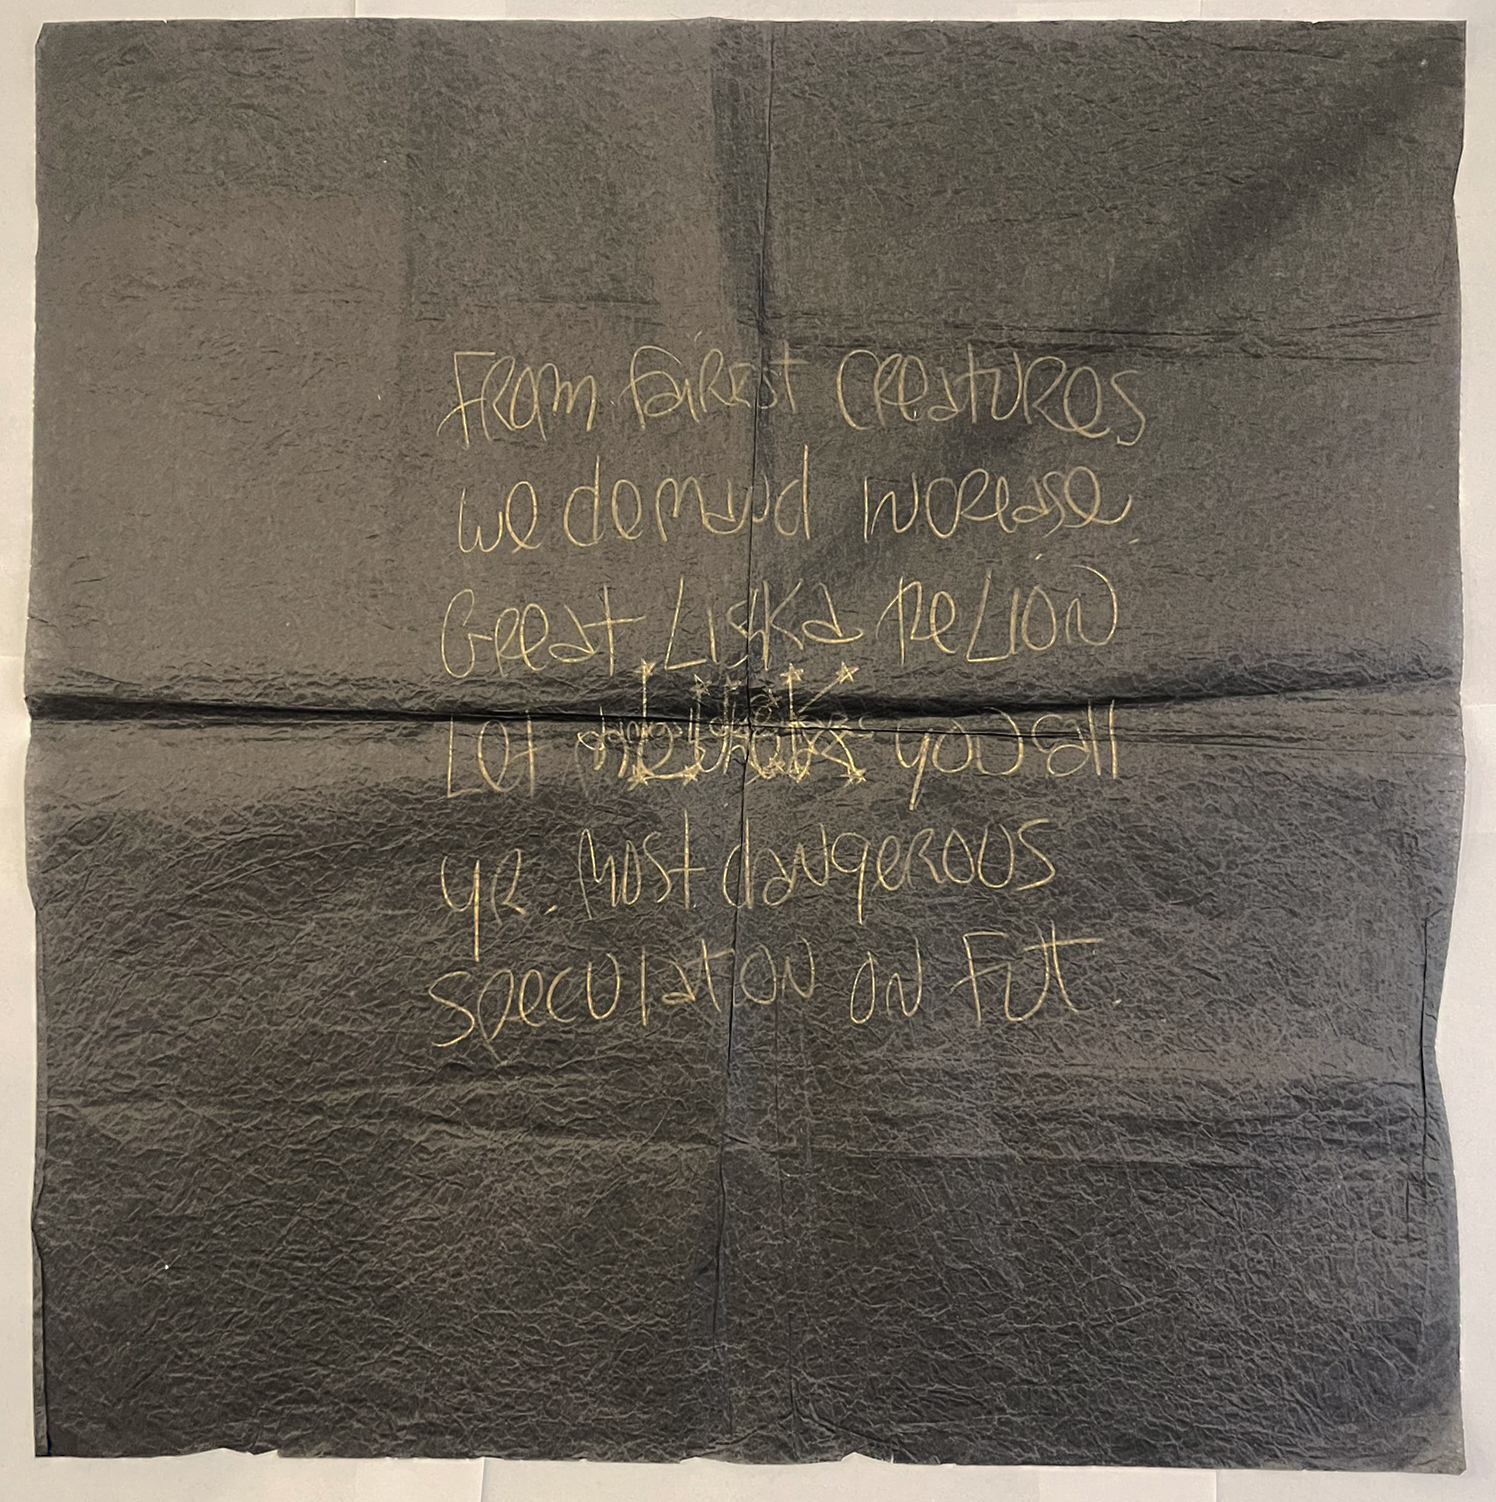 From fairest creatures
we demand increase.
Great Liska Relion
Let you all
yr. most dangerous
speculation on Fut.